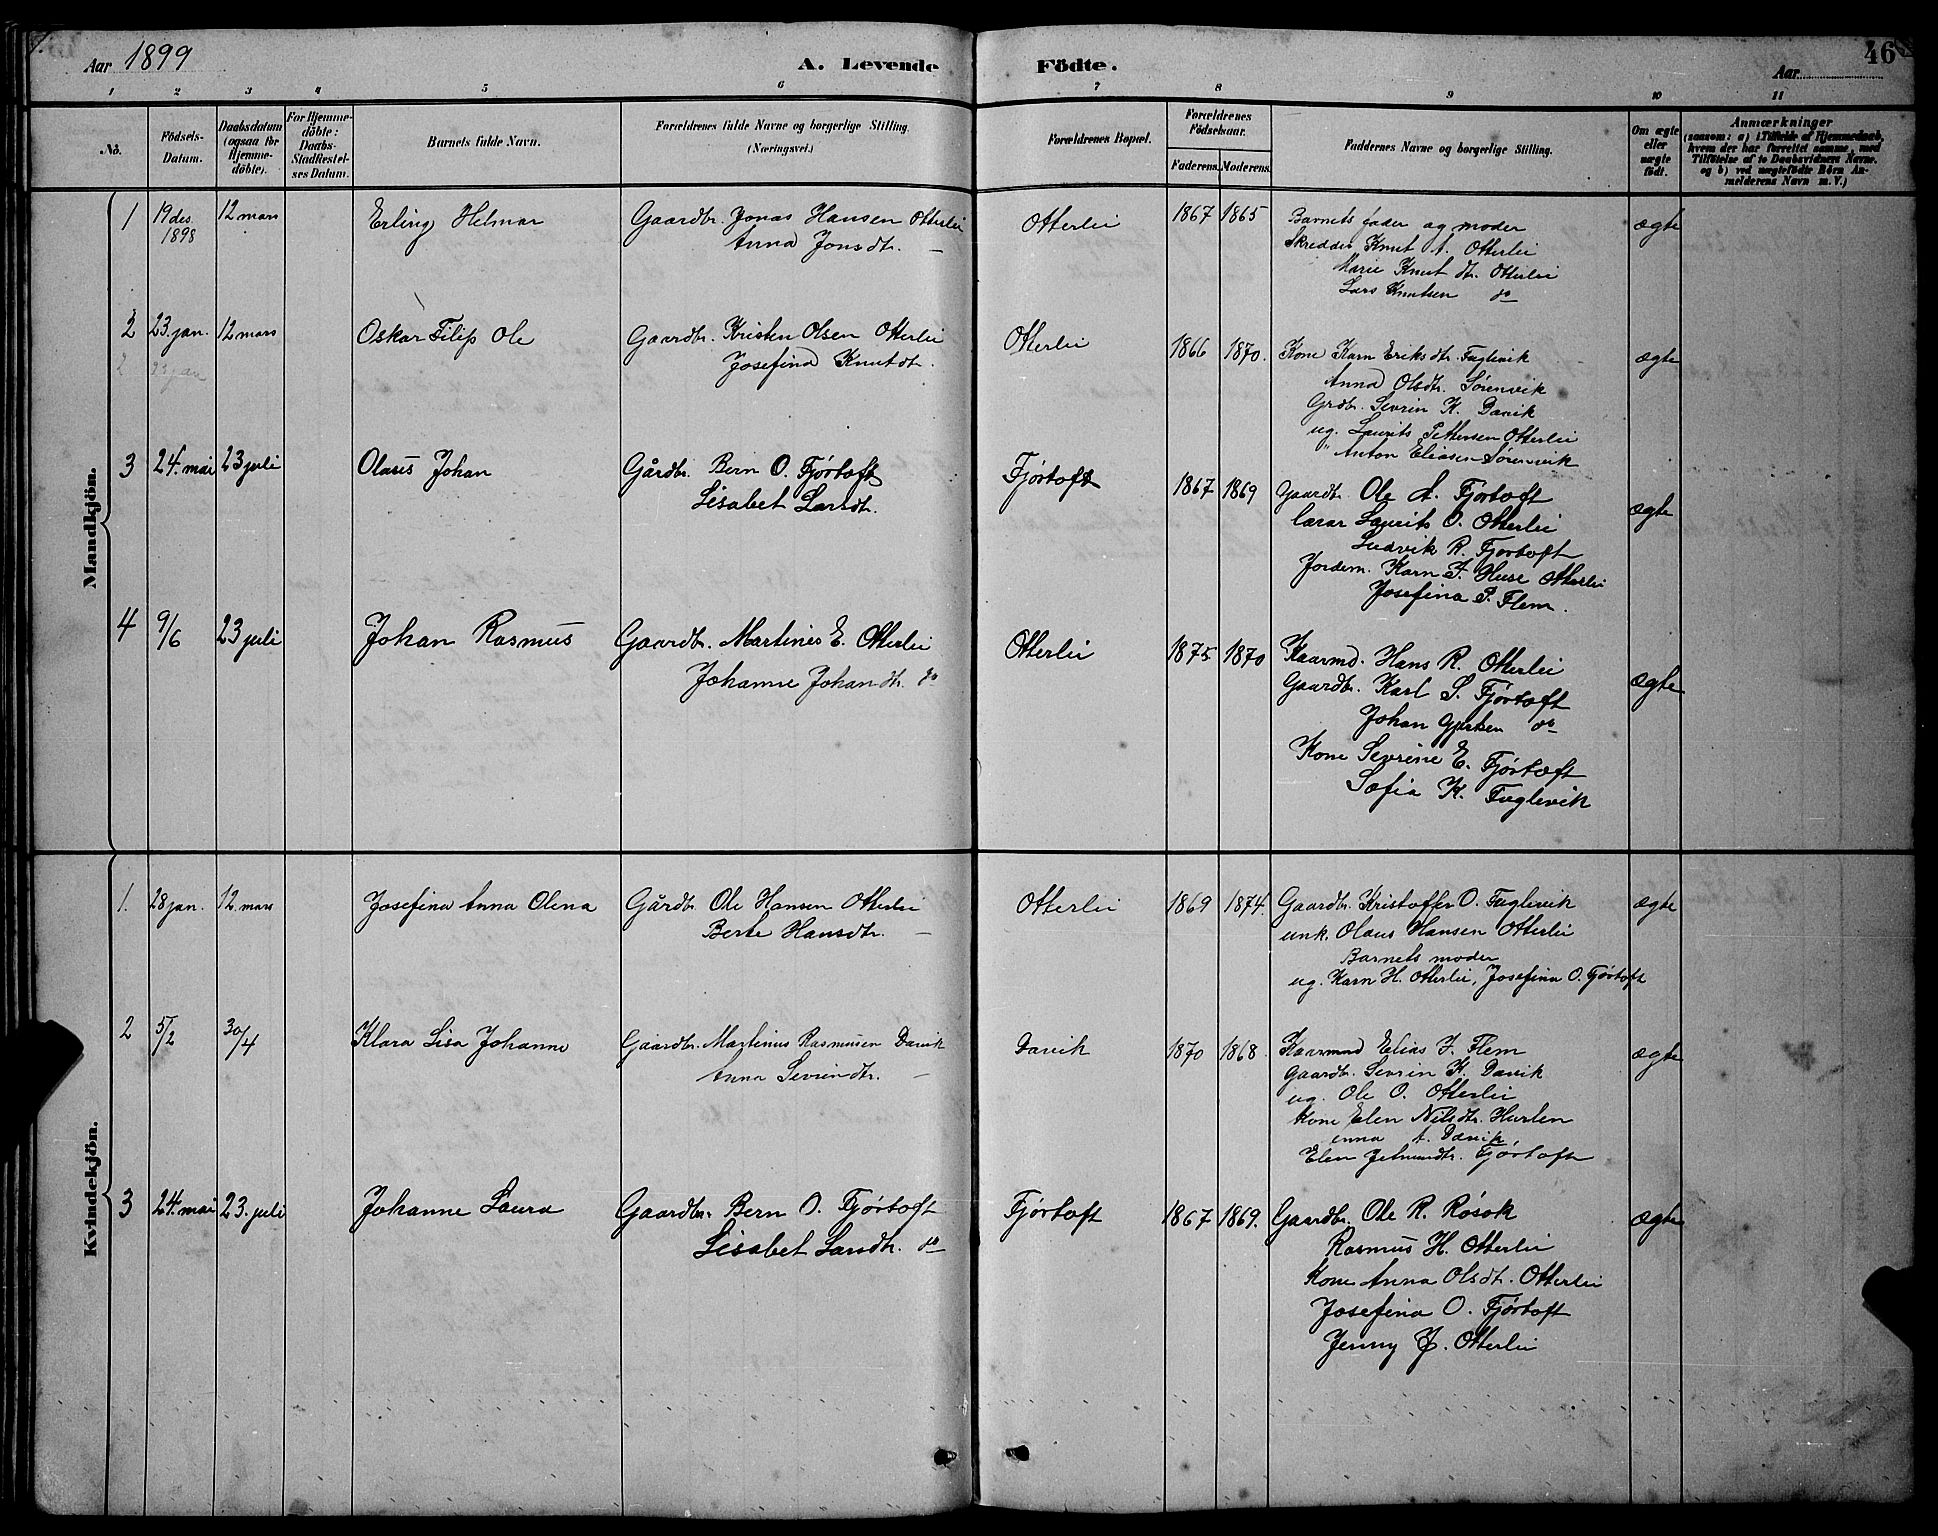 Aar 1899
A. Levende Födte.
46
Aar
1 2 3 4 5 6 7 8 9 10 11
No.
Födsels-Datum.
Daabsdatum (ogsaa for Hjemme-döbte).
For Hjemme-döbte: Daabs-Stadfestel-ses Datum.
Barnets fulde Navn.
Forældrenes fulde Navne og borgerlige Stilling. (Næringsvei.)
Forældrenes Bopæl.
Forældrenes Födselsaar.
Faderens. Moderens.
Faddernes Navne og borgerlige Stilling.
Om ægte eller uægte födt.
Anmærkninger
(saasom: a) i Tilfælde af Hjemmedaab, hvem der har forrettet samme, med Tilföielse af to Daabsvidners Navne. og b) ved uægtefödte Börn An-melderens Navn m.V.)
Mandkjön.
1 19 des. 1898 12 mars Erling Helmar Gaardbr. Jonas Hansen Otterlei
Anna Jonsdtr. —
Otterlei 1867 1865 Barnets fader og moder ægte
Skredder Knut A. Otterlei
Marie Knutdtr. Otterlei
Lars Knutsen do
2 23. jan. 12 mars Oskar Filip Ole Gaardbr. Kristen Olsen Otterlei
2 23 jan
Josefina Knutdtr.
Otterlei 1866 1870. Kone Karn Eriksdtr. Fuglevik ægte
Anna Olsdtr. Sørenvik
Grdbr. Sevrin K. Davik
ug. Laurits Pettersen Otterlei
" Anton Eliasen Sørenvik
3 24. mai 23 juli Olaus Johan Gårdbr. Bern O. Fjørtoft
Lisabet Larsdtr.
Fjørtoft 1867 1869 Gaardbr. Ole A. Fjørtoft ægte
lærar Laurits O. Otterlei
Ludvik R. Fjørtoft
Jordem. Karn J. Huse Otterlei
Josefina P. Flem.
4 9/6 23 juli Johan Rasmus Gaardbr. Martines E. Otterlei
Johanne Johandtr. do
Otterlei 1875 1870 Kaarmd. Hans R. Otterlei ægte
Gaardbr. Karl S. Fjørtoft
Johan Gjertsen do
Kone Sevrine E. Fjørtoft
Sofia K. Fuglevik
Kvindekjön.
1. 28 jan. 12 mars Josefina Anna Olena Gårdbr. Ole Hansen Otterlei
Berte Hansdtr. —
Otterlei 1869 1874. Gaardbr. Kristoffer O. Fuglevik ægte
unk. Olaus Hansen Otterlei
Barnets moder
ug. Karn H. Otterlei, Josefina O. Fjørtoft
2 5/2 30/4 Klara Lisa Johanne Gaardbr. Martinus Rasmusen Davik
Anna Sevrindtr. —
Davik 1870 1868. Kaarmnd Elias J. Flem ægte
Gaardbr. Sevrin K. Davik
ug. Ole O. Otterlei
Kone Elen Nilsdtr. Hurlen
enna A. Davik
Elen Jetmundtr. Fjørtoft
3 24. mai 23. juli Johanne Laura Gaardbr. Bern O. Fjørtoft
Lisabet Larsdtr. do
Fjørtoft 1867 1869. Gaardbr. Ole R. Røsok ægte
Rasmus H. Otterlei
Kone Anna Olsdtr. Otterlei
Josefina O. Fjørtoft
Jenny J. Otterlei